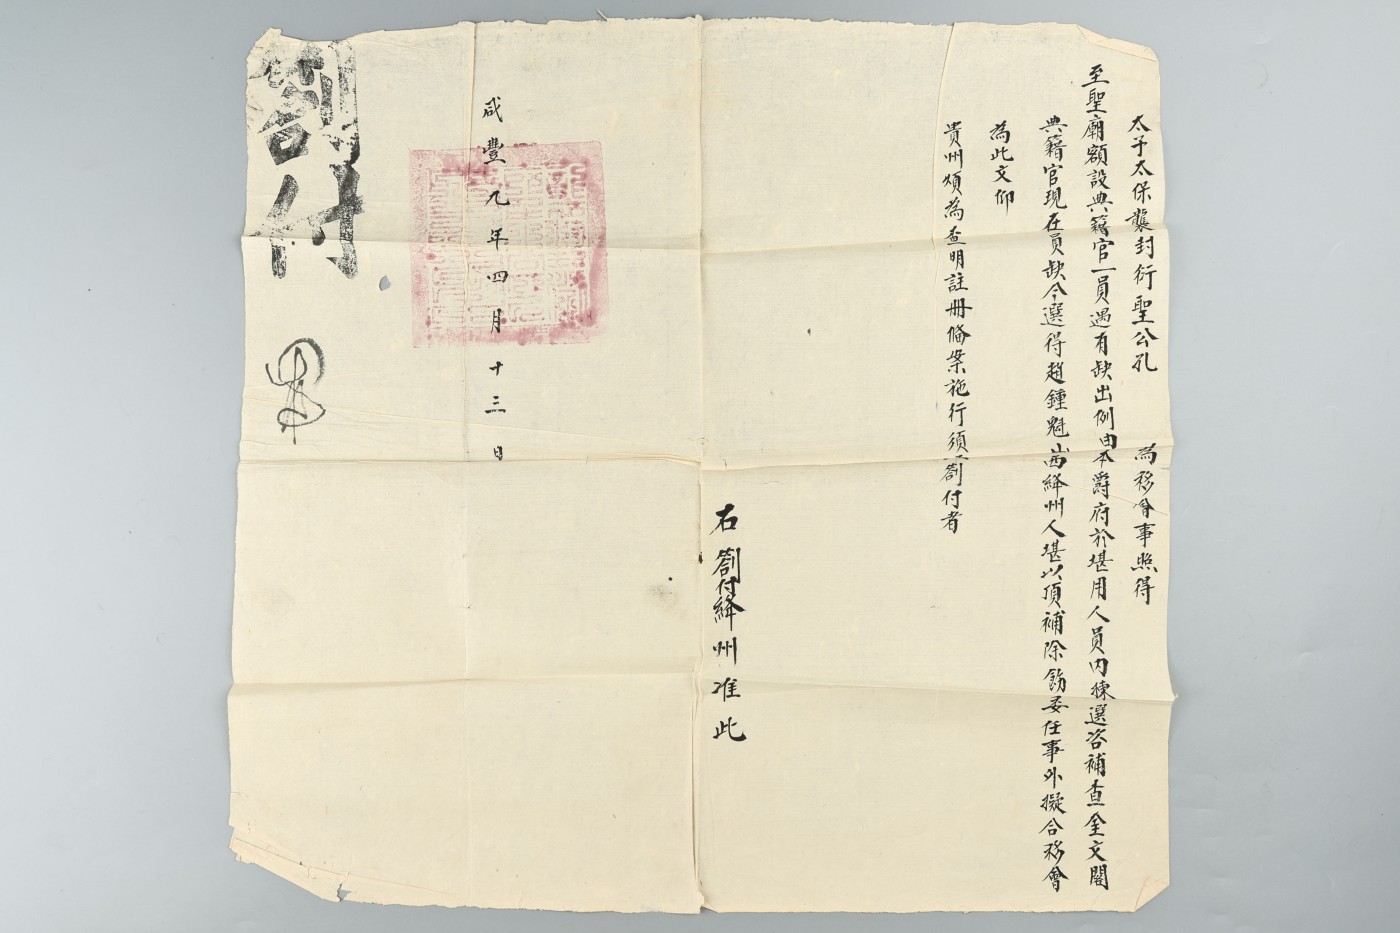 太子太保襲封衍聖公孔 為移會事照得
至聖廟額設典籍官一員遇有缺出例由本爵府於堪用人員內揀選咨補查奎文閣
典籍官現在員缺今選得趙鍾魁山西絳州人堪以頂補除飭委任事外擬合移會
為此文仰
貴州煩為查明註冊備案施行須劄付者
右劄付絳州准此
咸豐九年四月十三日
劄付